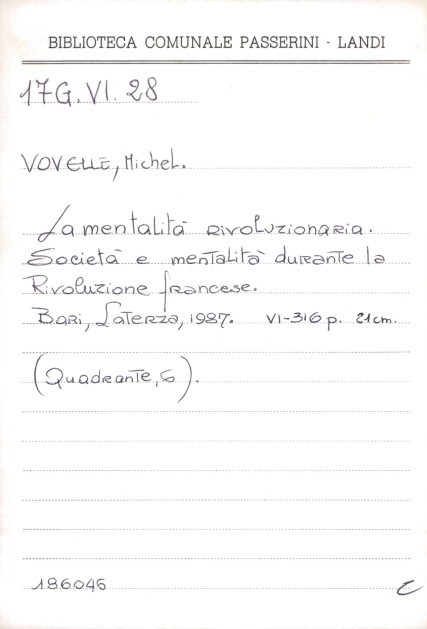 BIBLIOTECA COMUNALE PASSERINI - LANDI
17G.VI.28
VOVELLE, Michel.
La mentalità rivoluzionaria.
Società e mentalità durante la
Rivoluzione francese.
Bari, Laterza, 1987. VI-316 p. 21cm.
(Quadrante, 6).
186045